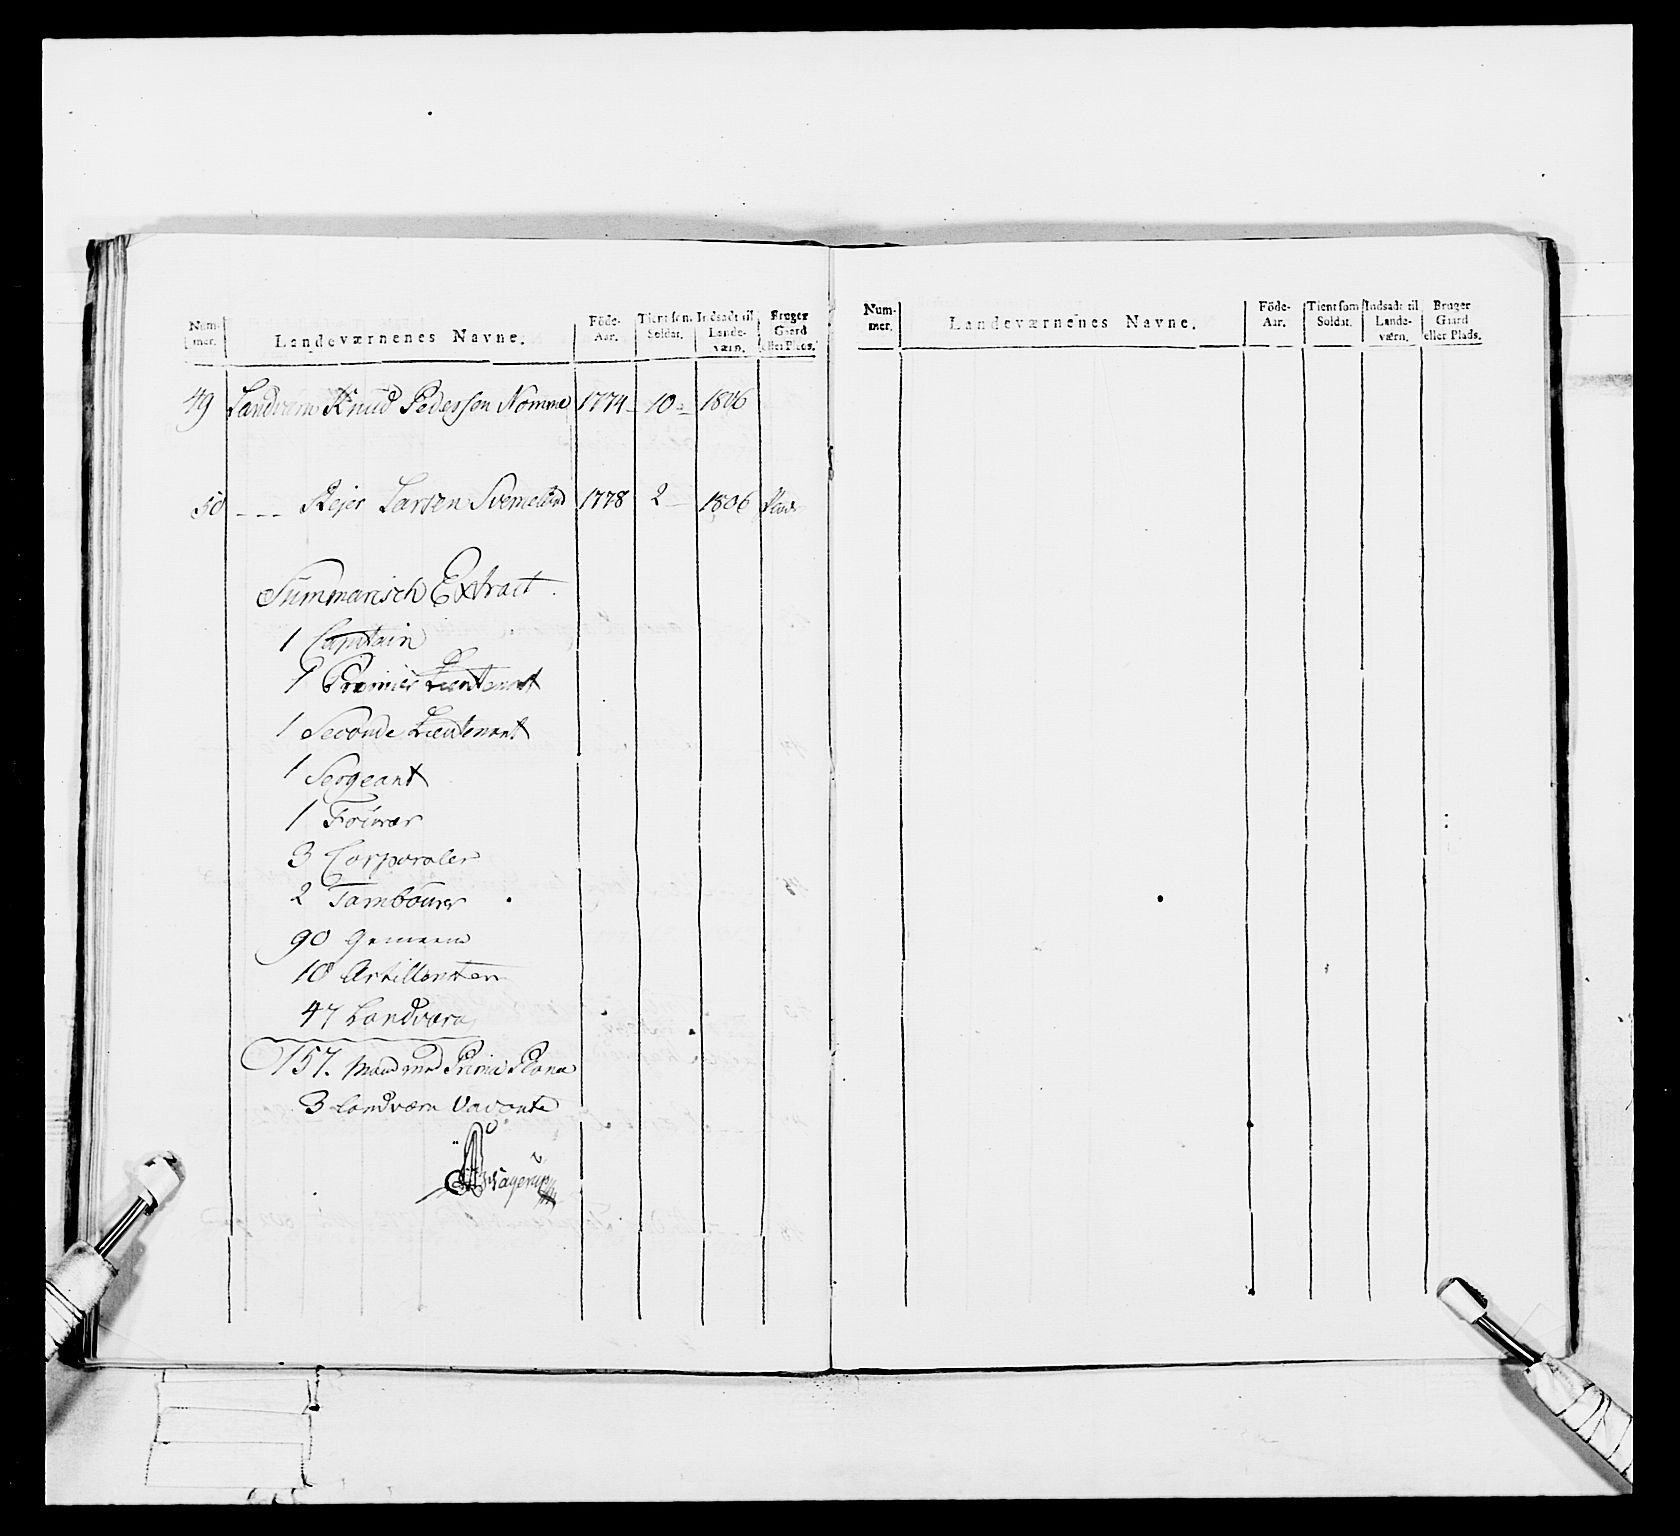 Num-
mer.
Landeværnenes Navne.
Föde-
Aar.
Tient som
Soldat.
Indsadt til
Lande-
værn.
Bruger
Gaard
eller Plads.
49 Landværn Knud Pedersen 1774 - 10 - 1806
50 - - - Rejer Larsen 1778 2 - 1806 Plads
Summarisch Extract.
1 Captain
1 Premier Lieutenant
1 Seconde Lieutenant
1 Sergeant
1 Fourer
3 Corporaler
2 Tambourer
90 Gemeene
10 Artillerister
47 Landværn
157. Mand med Prima Plana
3 Landværn Vacante
Num-
mer.
Landeværnenes Navne.
Föde-
Aar.
Tient som
Soldat.
Indsadt til
Lande-
værn.
Bruger
Gaard
eller Plads.